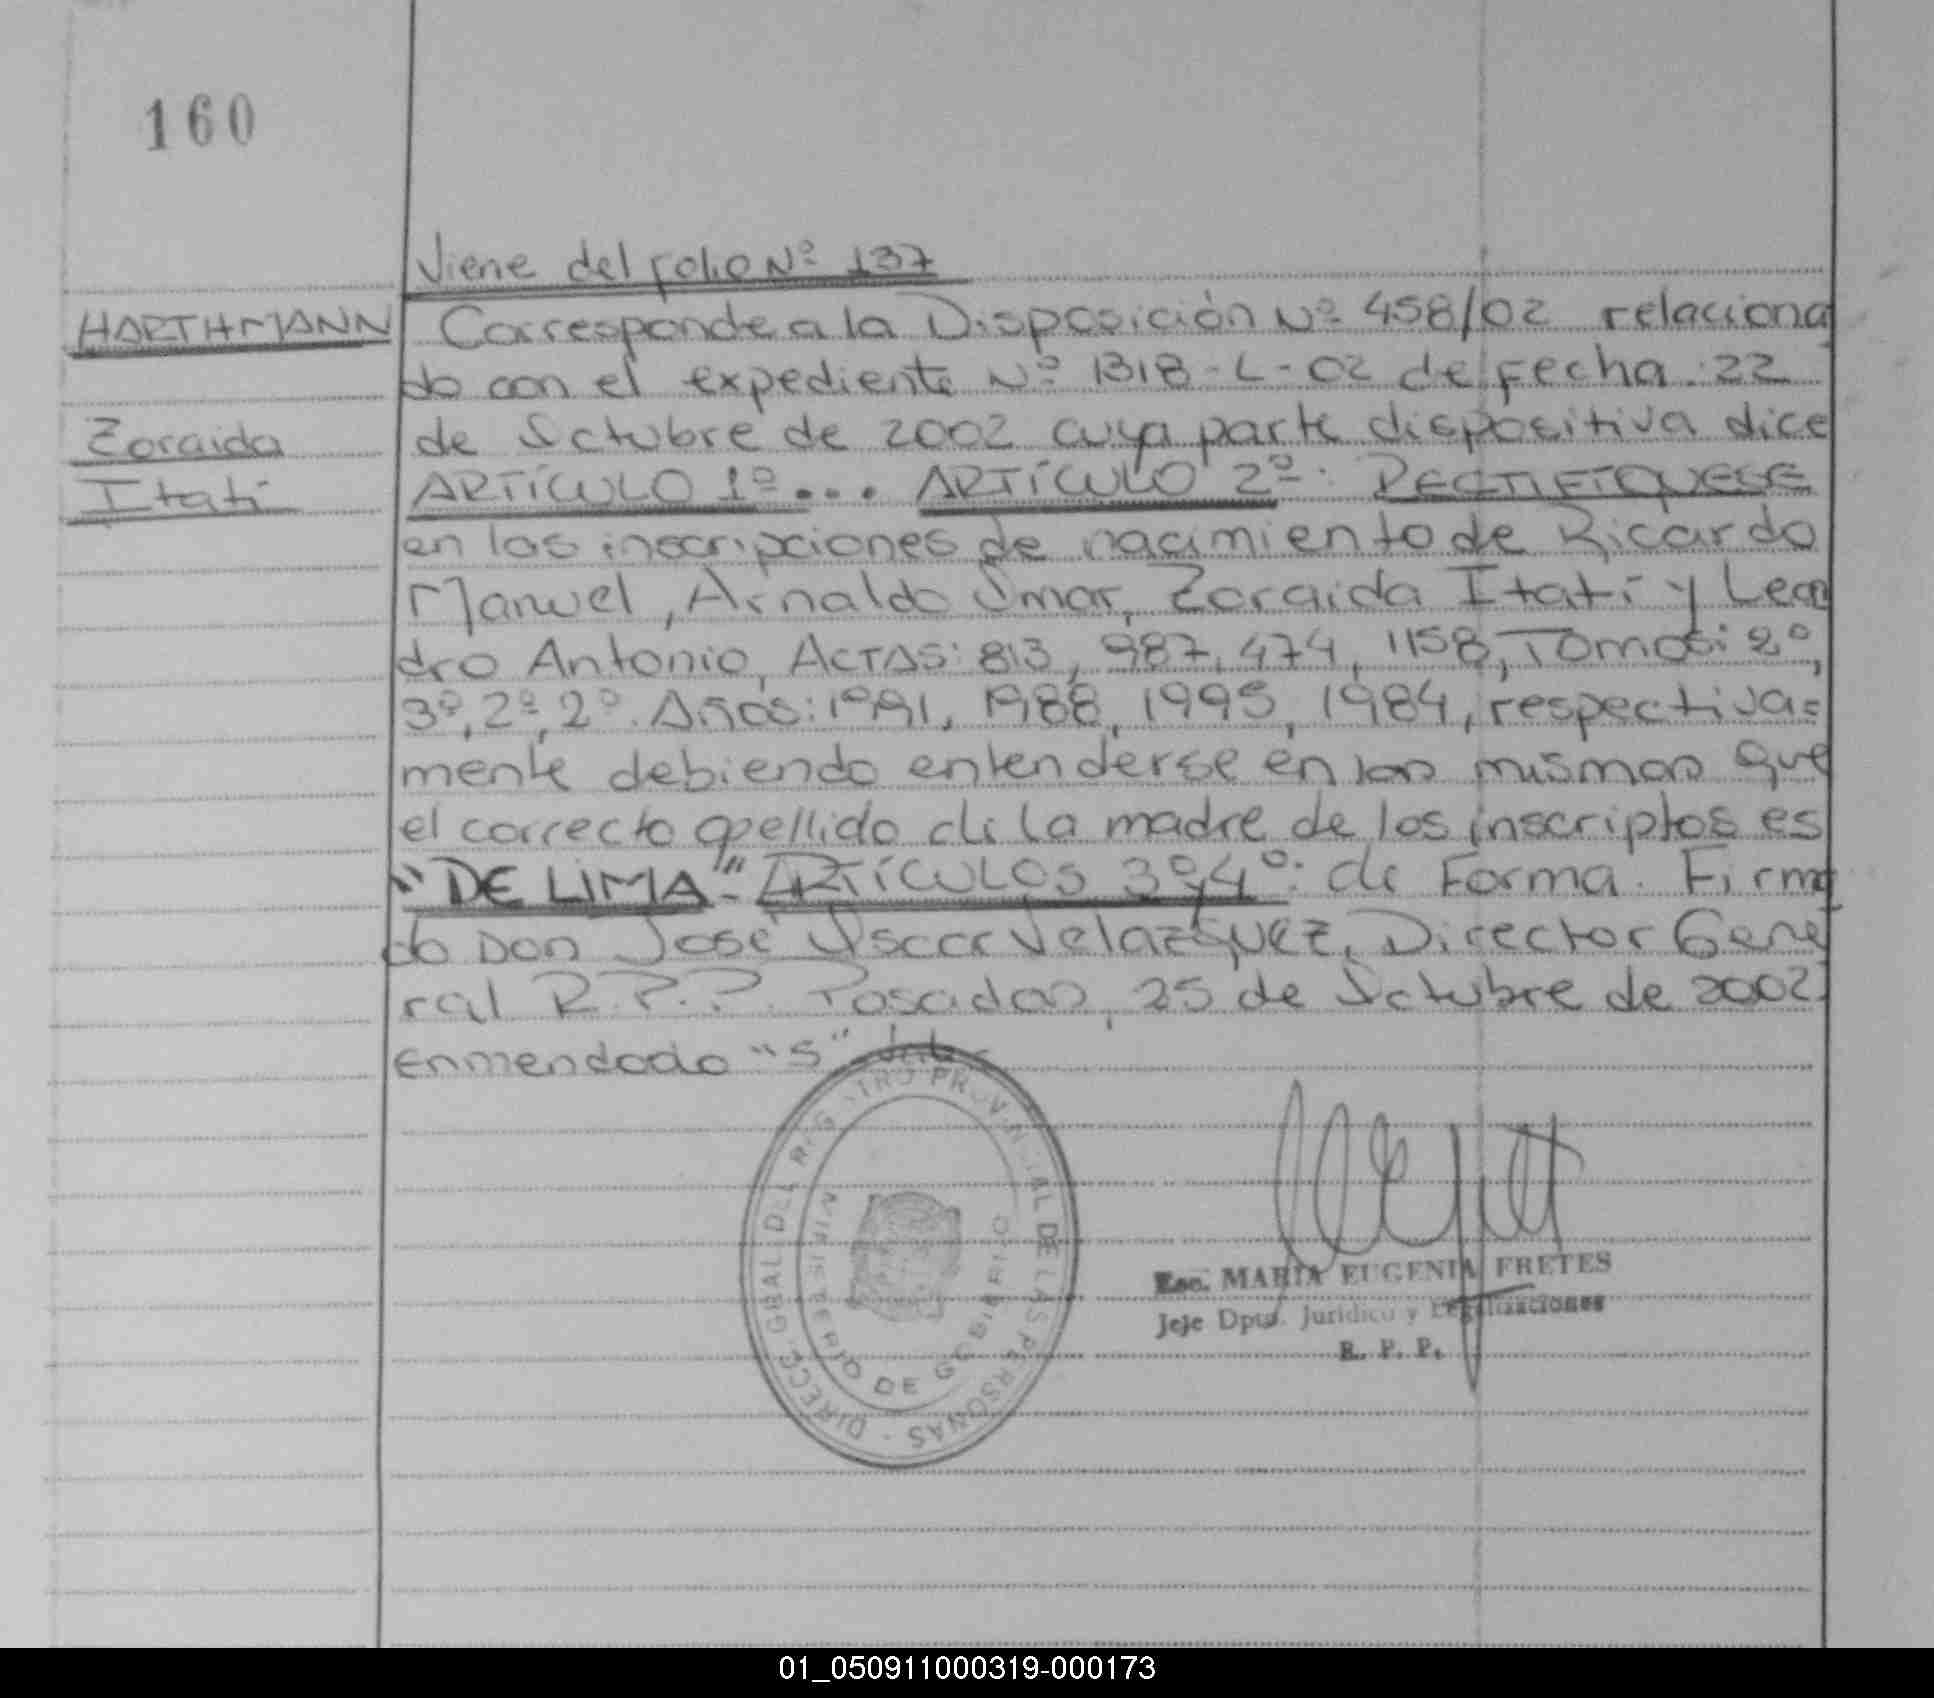 160
Viene del folio Nº 137
HARTHMANN
Zoraida
Itatí
Corresponde a la Disposición Nº 458/02 relaciona
do con el expediente Nº 1318-L-02 de fecha: 22
de Octubre de 2002 cuya parte dispositiva dice
ARTÍCULO 1º... ARTÍCULO 2º: RECTIFIQUESE
en las inscripciones de nacimiento de Ricardo
Manuel, Arnaldo Omar, Zoraida Itatí y Lean
dro Antonio, ACTAS: 813, 987, 474, 1158, Tomos: 2º,
3º, 2º, 2º. Años: 1991, 1988, 1995, 1984, respectiva=
mente debiendo entenderse en las mismas que
el correcto apellido de la madre de los inscriptos es
"DE LIMA".- ARTÍCULOS 3º y 4º: de Forma. Firma
do DON José Oscar Velazquez, Director Gene
ral R.P.P. Posadas, 25 de Octubre de 2002.
enmendado "S" Vale-
DIRECC. GRAL. DEL REGISTRO PROVINCIAL DE LAS PERSONAS -
MINISTERIO DE GOBIERNO
Esc. MARIA EUGENIA FRETES
Jefe Dpto. Jurídico y Legalizaciones
R. P. P.
01_050911000319-000173